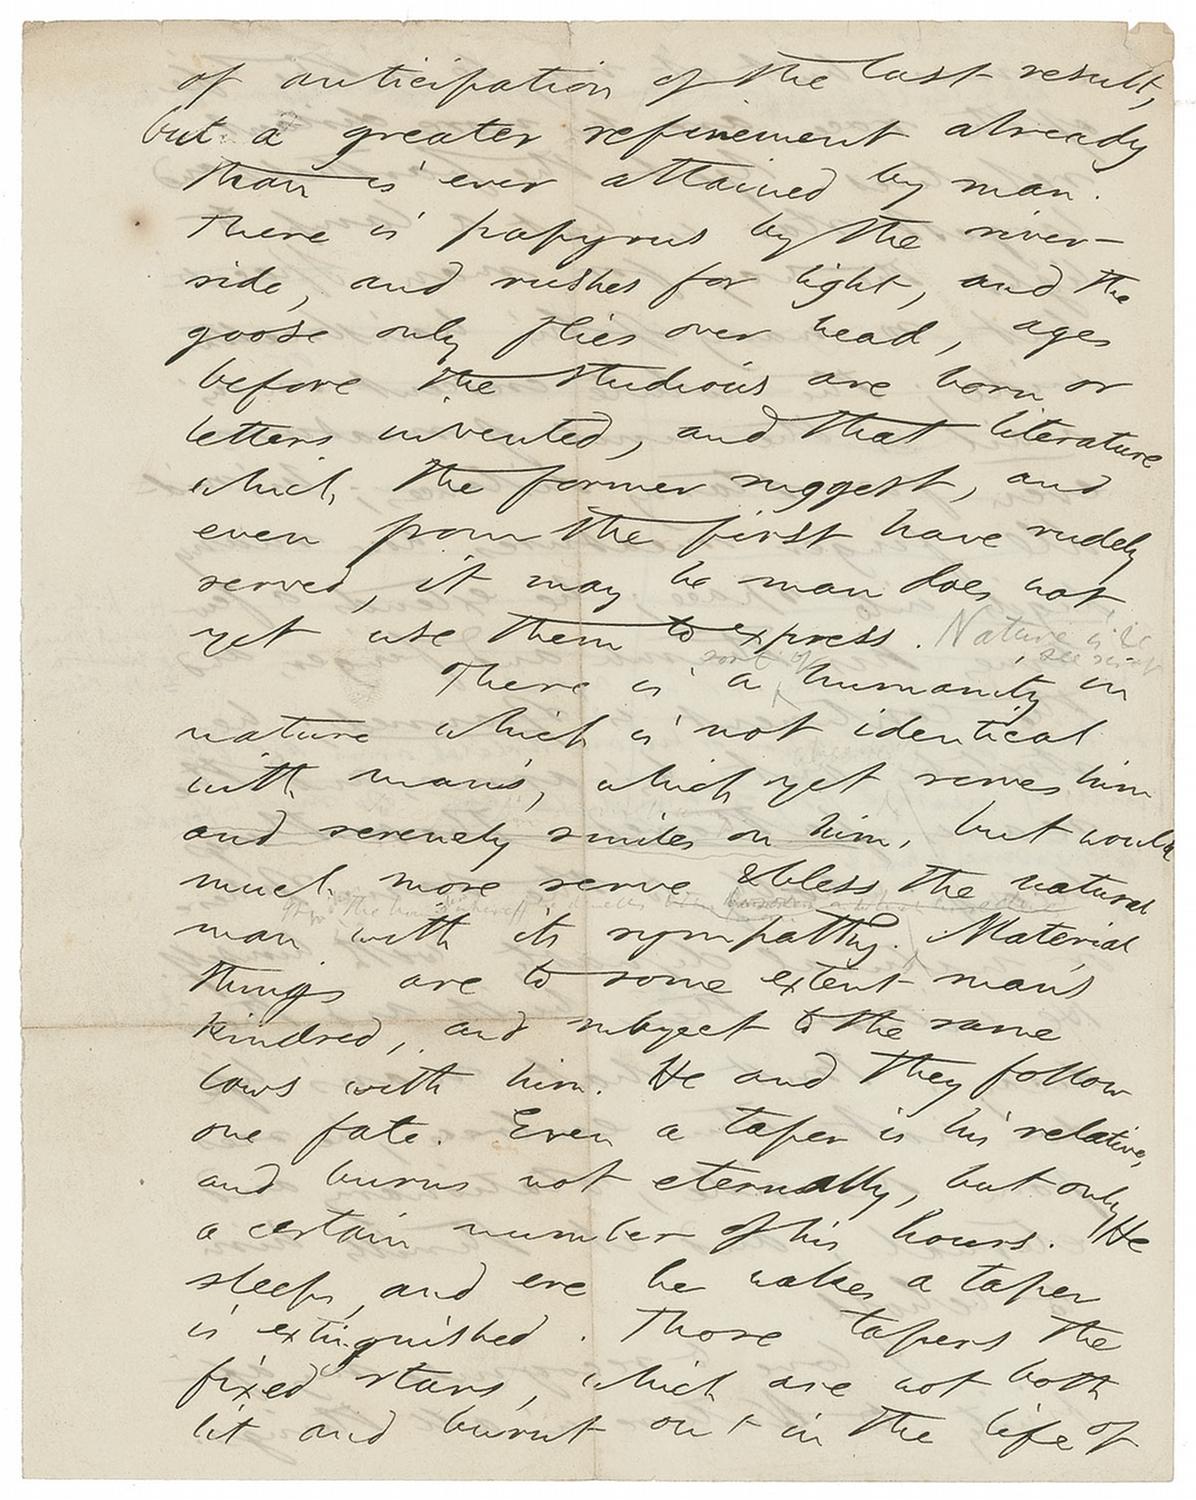 of anticipation of the last result,
but a greater refinement already
than is ever attained by man.
There is papyrus by the river-
side, and rushes for light, and the
goose only flies over head, ages
before the studious are born or
letters invented, and that literature
which the former suggest, and
even from the first have rudely
served, it may be man does not
yet use them to express. Nature is
sort of
There is a humanity in
nature which is not identical
with man's, which yet serves him
and serenely smiles on him, but would
much more serve & bless the natural
man with its sympathy. Material
things are to some extent man's
kindred, and subject to the same
laws with him. He and they follow
one fate. Even a taper is his relative,
and burns not eternally, but only
a certain number of his hours. He
sleeps, and ere he wakes a taper
is extinguished. Those tapers the
fixed stars, which are not both
lit and burnt out in the life of